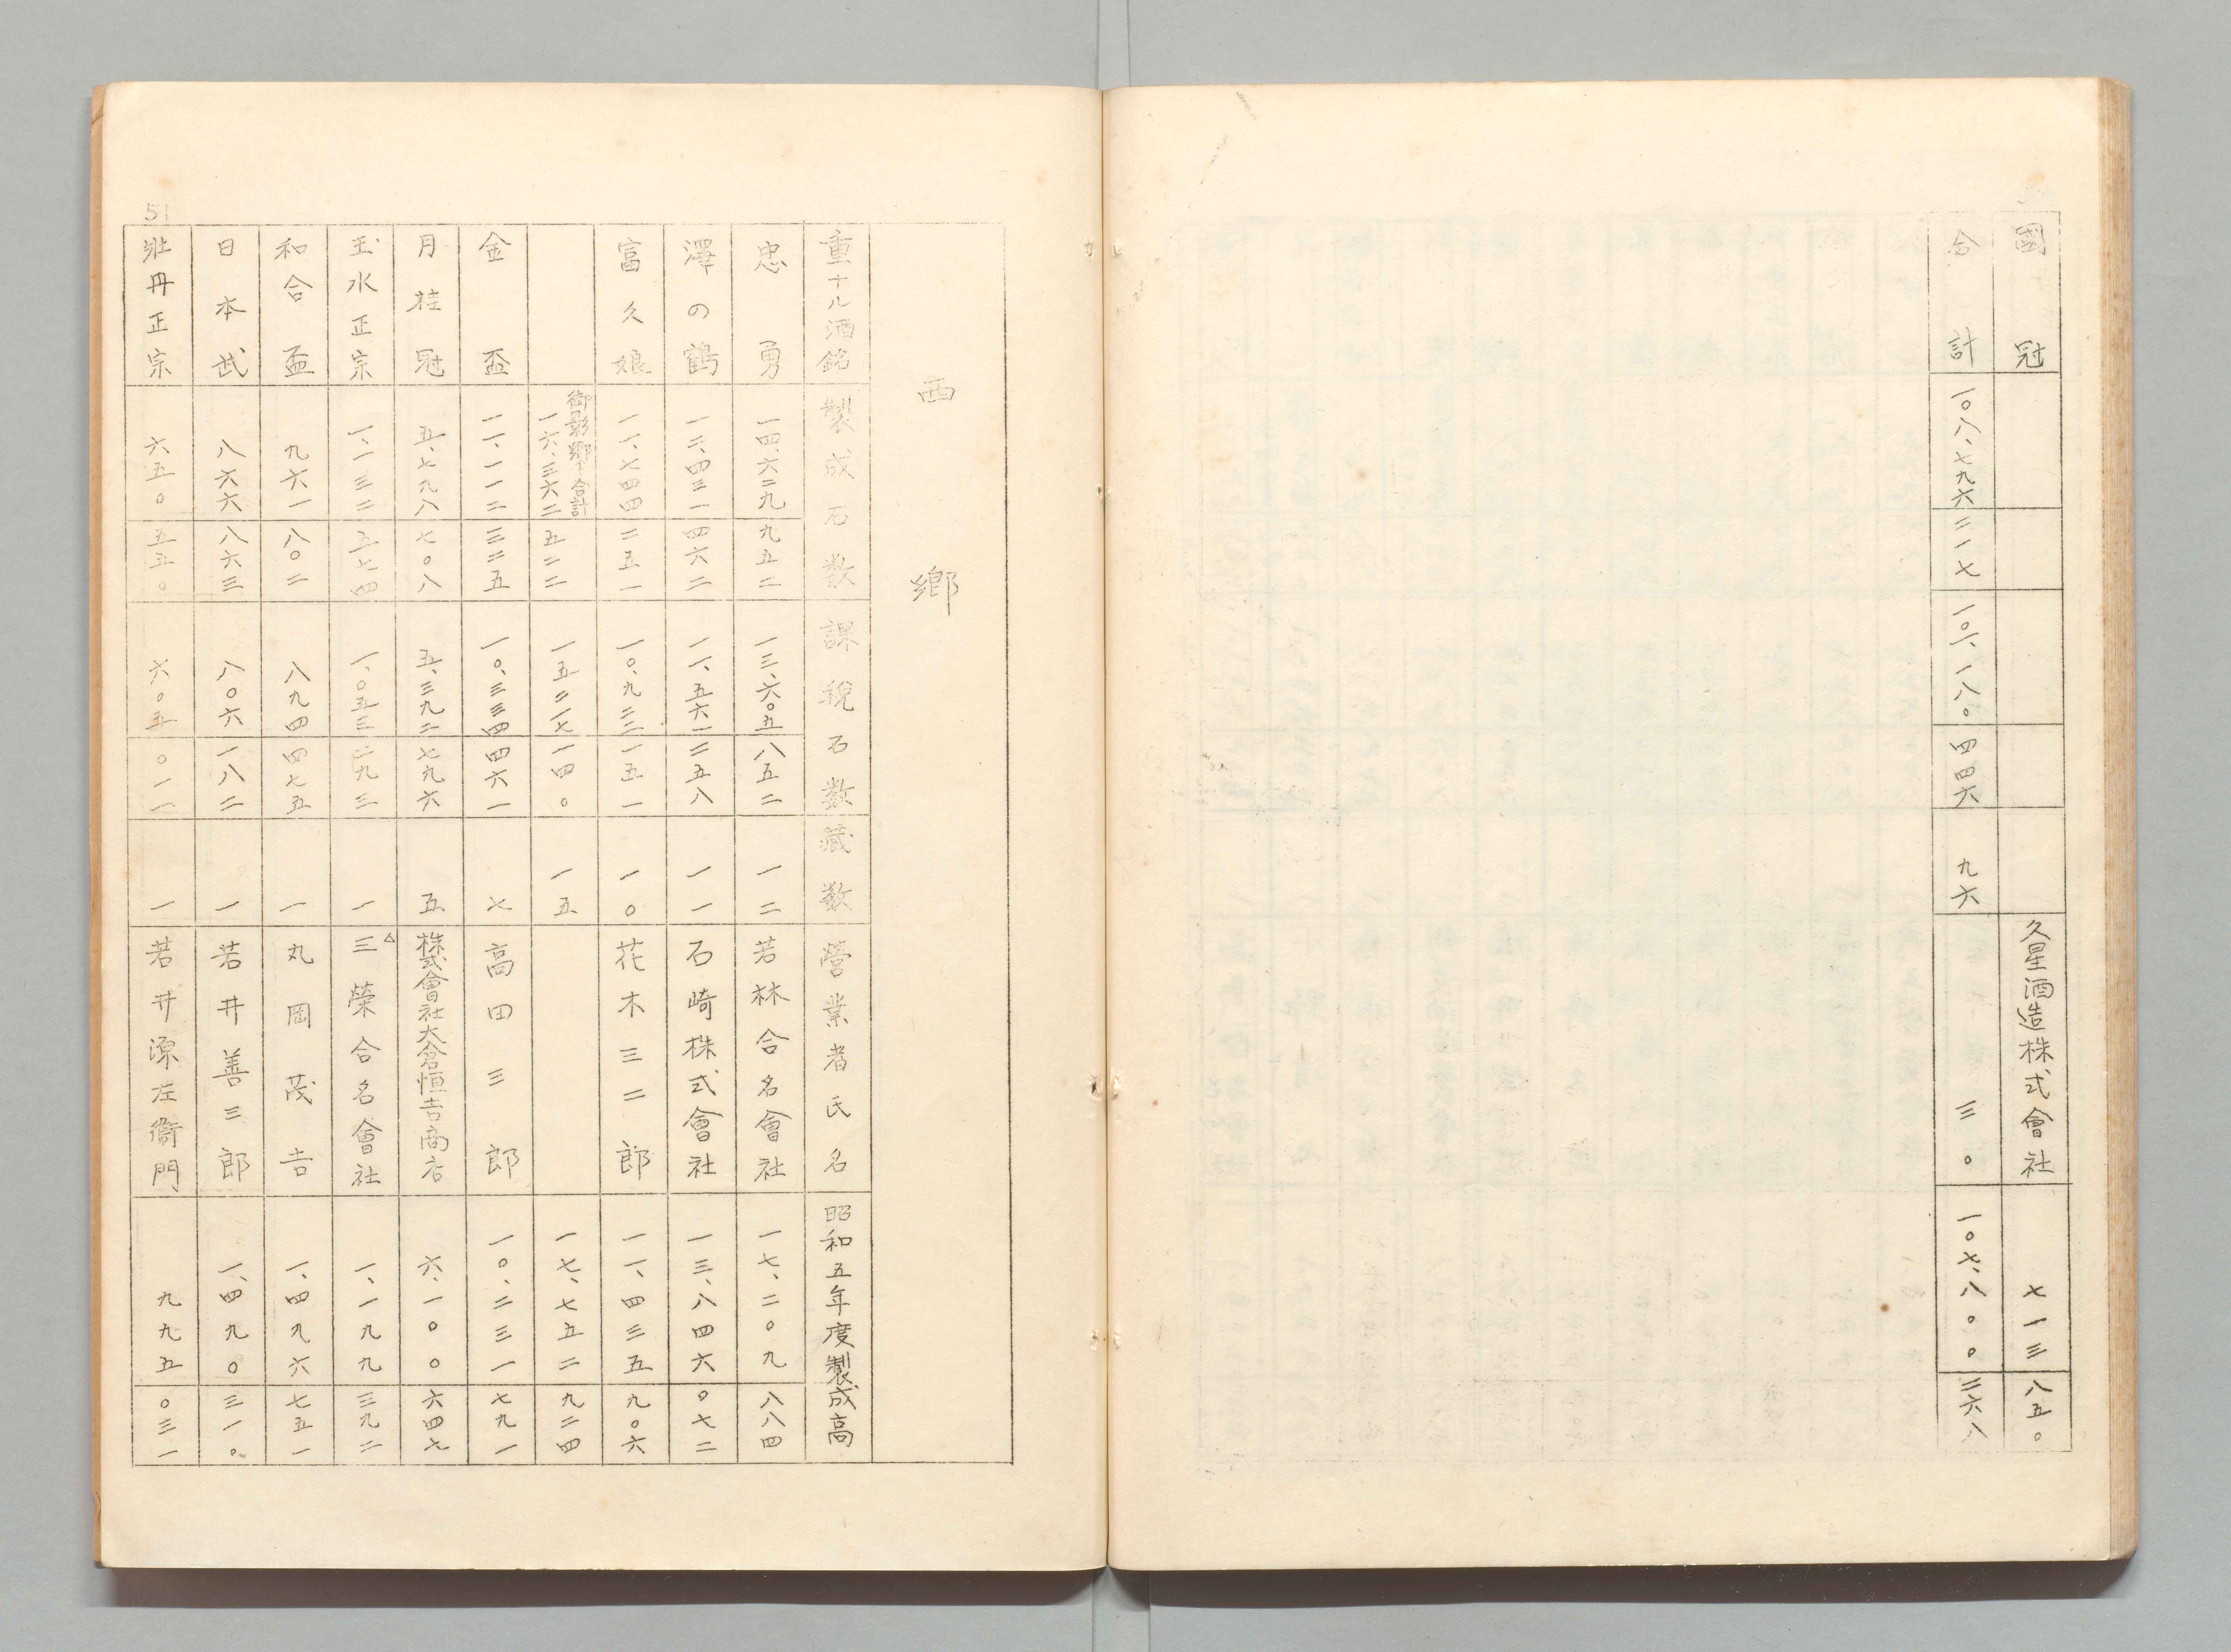 國冠 久星酒造株式會社 七一三 八五〇
合計 一〇八、七九六 二一七 一〇一、一八〇 四四六 九六 三〇 一〇七、八〇〇 二六八
西鄉
重ナル酒銘 製成石数 課税石数 藏数 營業者氏名 昭和五年度製成高
忠勇 一四、六二九 九五二 一三、六〇五 八五二 一二 若林合名會社 一七、二〇九 八八四
澤の鶴 一二、四三一 四六二 一一、五六一 二五八 一一 石崎株式會社 一三、八四六 〇七二
富久娘 一一、七四四 二五一 一〇、九三二 一五一 一〇 花木三二郎 一一、四三五 九〇六
御影鄉合計
一六、三六二 五二二 一五二一七 一四〇 一五 一七、七五二 九二四
金盃 一一、一一二 三二五 一〇、三三四 四六一 七 高田三郎 一〇、二三一 七九一
月桂冠 五、七九八 七〇八 五、三九二 七九六 五 株式會社大倉恒吉商店 六、一〇〇 六四七
玉水正宗 一、一三二 五七四 一、〇五三 二九三 一 △三榮合名會社 一、一九九 三九二
和合盃 九六一 八〇二 八九四 四七五 一 丸岡茂吉 一、四九六 七五一
日本武 八六六 八六三 八〇六 一八二 一 若井善三郎 一、四九〇 三一〇
壯丹正宗 六五〇 五五〇 六〇五 〇一一 一 若井源左衞門 九九五 〇三一
51